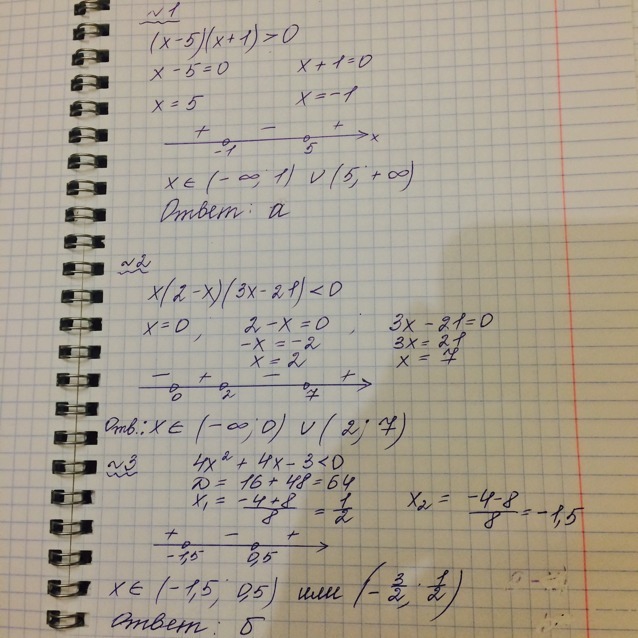 ~1
(x-5)(x+1)>0
x-5=0 x+1=0
x=5 x=-1
+ - +
-1 5 x
x∈(-∞; 1) ∪ (5; +∞)
Ответ: а
~2
x(2-x)(3x-21)<0
x=0, 2-x=0 ; 3x-21=0
-x=-2 3x=21
x=2 x=7
- + - +
0 2 7
Отв.: x∈ (-∞; 0) ∪ (2; 7)
~3 4x²+4x-3<0
D=16+48=64
x₁= -4+8/8 = 1/2 x₂= -4-8/8 =-1,5
+ - +
-1,5 0,5
x∈ (-1,5; 0,5) или (-3/2; 1/2)
Ответ: б